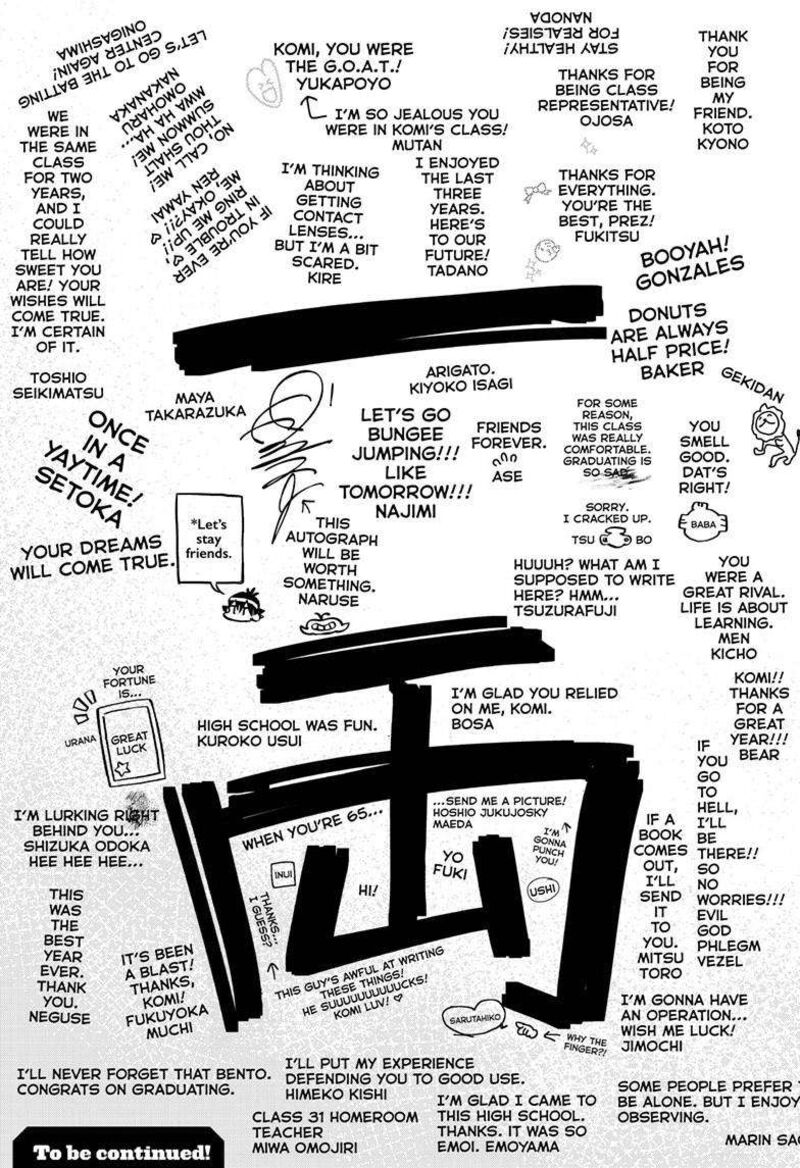 LET'S GO TO THE BATTING
CENTER AGAIN!
ONIGASHIMA
KOMI, YOU WERE
THE G.O.A.T.!
YUKAPOYO
I'M SO JEALOUS YOU
WERE IN KOMI'S CLASS!
MUTAN
STAY HEALTHY!
FOR REALSIES!
NANODA
THANKS FOR
BEING CLASS
REPRESENTATIVE!
OJOSA
THANK
YOU
FOR
BEING
MY
FRIEND.
KOTO
KYONO
WE
WERE IN
THE SAME
CLASS
FOR TWO
YEARS,
AND I
COULD
REALLY
TELL HOW
SWEET YOU
ARE! YOUR
WISHES WILL
COME TRUE.
I'M CERTAIN
OF IT.
TOSHIO
SEIKIMATSU
NO, CALL ME!
THOU SHALT
SUMMON ME!
MWA HA HA...
OMOHARU
NAKANAKA
IF YOU'RE EVER
IN TROUBLE
RING ME UP!!
ME, OKAY?!!
REN YAMAI
I'M THINKING
ABOUT
GETTING
CONTACT
LENSES...
BUT I'M A BIT
SCARED.
KIRE
I ENJOYED
THE LAST
THREE
YEARS.
HERE'S
TO OUR
FUTURE!
TADANO
THANKS FOR
EVERYTHING.
YOU'RE THE
BEST, PREZ!
FUKITSU
BOOYAH!
GONZALES
DONUTS
ARE ALWAYS
HALF PRICE!
BAKER
GEKIDAN
ARIGATO.
KIYOKO ISAGI
MAYA
TAKARAZUKA
ONCE
IN A
YAYTIME!
SETOKA
LET'S GO
BUNGEE
JUMPING!!!
LIKE
TOMORROW!!!
NAJIMI
FRIENDS
FOREVER.
ASE
FOR SOME
REASON,
THIS CLASS
WAS REALLY
COMFORTABLE.
GRADUATING IS
SO SAD.
SORRY.
I CRACKED UP.
TSU BO
YOU
SMELL
GOOD.
DAT'S
RIGHT!
BABA
YOUR DREAMS
WILL COME TRUE.
*Let's
stay
friends.
THIS
AUTOGRAPH
WILL BE
WORTH
SOMETHING.
NARUSE
HUUUH? WHAT AM I
SUPPOSED TO WRITE
HERE? HMM...
TSUZURAFUJI
YOU
WERE A
GREAT RIVAL.
LIFE IS ABOUT
LEARNING.
MEN
KICHO
YOUR
FORTUNE
IS...
URANA
GREAT
LUCK
HIGH SCHOOL WAS FUN.
KUROKO USUI
I'M GLAD YOU RELIED
ON ME, KOMI.
BOSA
KOMI!!
THANKS
FOR A
GREAT
YEAR!!!
BEAR
IF
YOU
GO
TO
HELL,
I'LL
BE
THERE!!
SO
NO
WORRIES!!!
EVIL
GOD
PHLEGM
VEZEL
I'M LURKING RIGHT
BEHIND YOU...
SHIZUKA ODOKA
HEE HEE HEE...
WHEN YOU'RE 65...
...SEND ME A PICTURE!
HOSHIO JUKUJOSKY
MAEDA
I'M
GONNA
PUNCH
YOU!
USHI
YO
FUKI
HI!
INUI
THANKS...
I GUESS?
IF A
BOOK
COMES
OUT,
I'LL
SEND
IT
TO
YOU.
MITSU
TORO
THIS
WAS
THE
BEST
YEAR
EVER.
THANK
YOU.
NEGUSE
IT'S BEEN
A BLAST!
THANKS,
KOMI!
FUKUYOKA
MUCHI
THIS GUY'S AWFUL AT WRITING
THESE THINGS!
HE SUUUUUUUUUCKS!
KOMI LUV! ♡
SARUTAHIKO
WHY THE
FINGER?!
I'M GONNA HAVE
AN OPERATION...
WISH ME LUCK!
JIMOCHI
I'LL NEVER FORGET THAT BENTO.
CONGRATS ON GRADUATING.
I'LL PUT MY EXPERIENCE
DEFENDING YOU TO GOOD USE.
HIMEKO KISHI
CLASS 31 HOMEROOM
TEACHER
MIWA OMOJIRI
I'M GLAD I CAME TO
THIS HIGH SCHOOL.
THANKS. IT WAS SO
EMOI. EMOYAMA
SOME PEOPLE PREFER
BE ALONE. BUT I ENJOY
OBSERVING.
MARIN
To be continued!